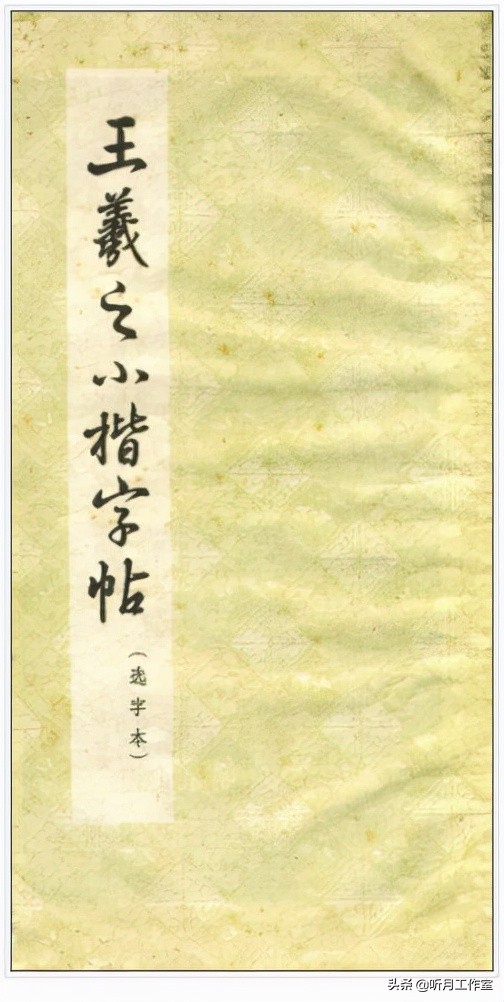 王羲之小楷字帖
(选字本)
头条 @听月工作室